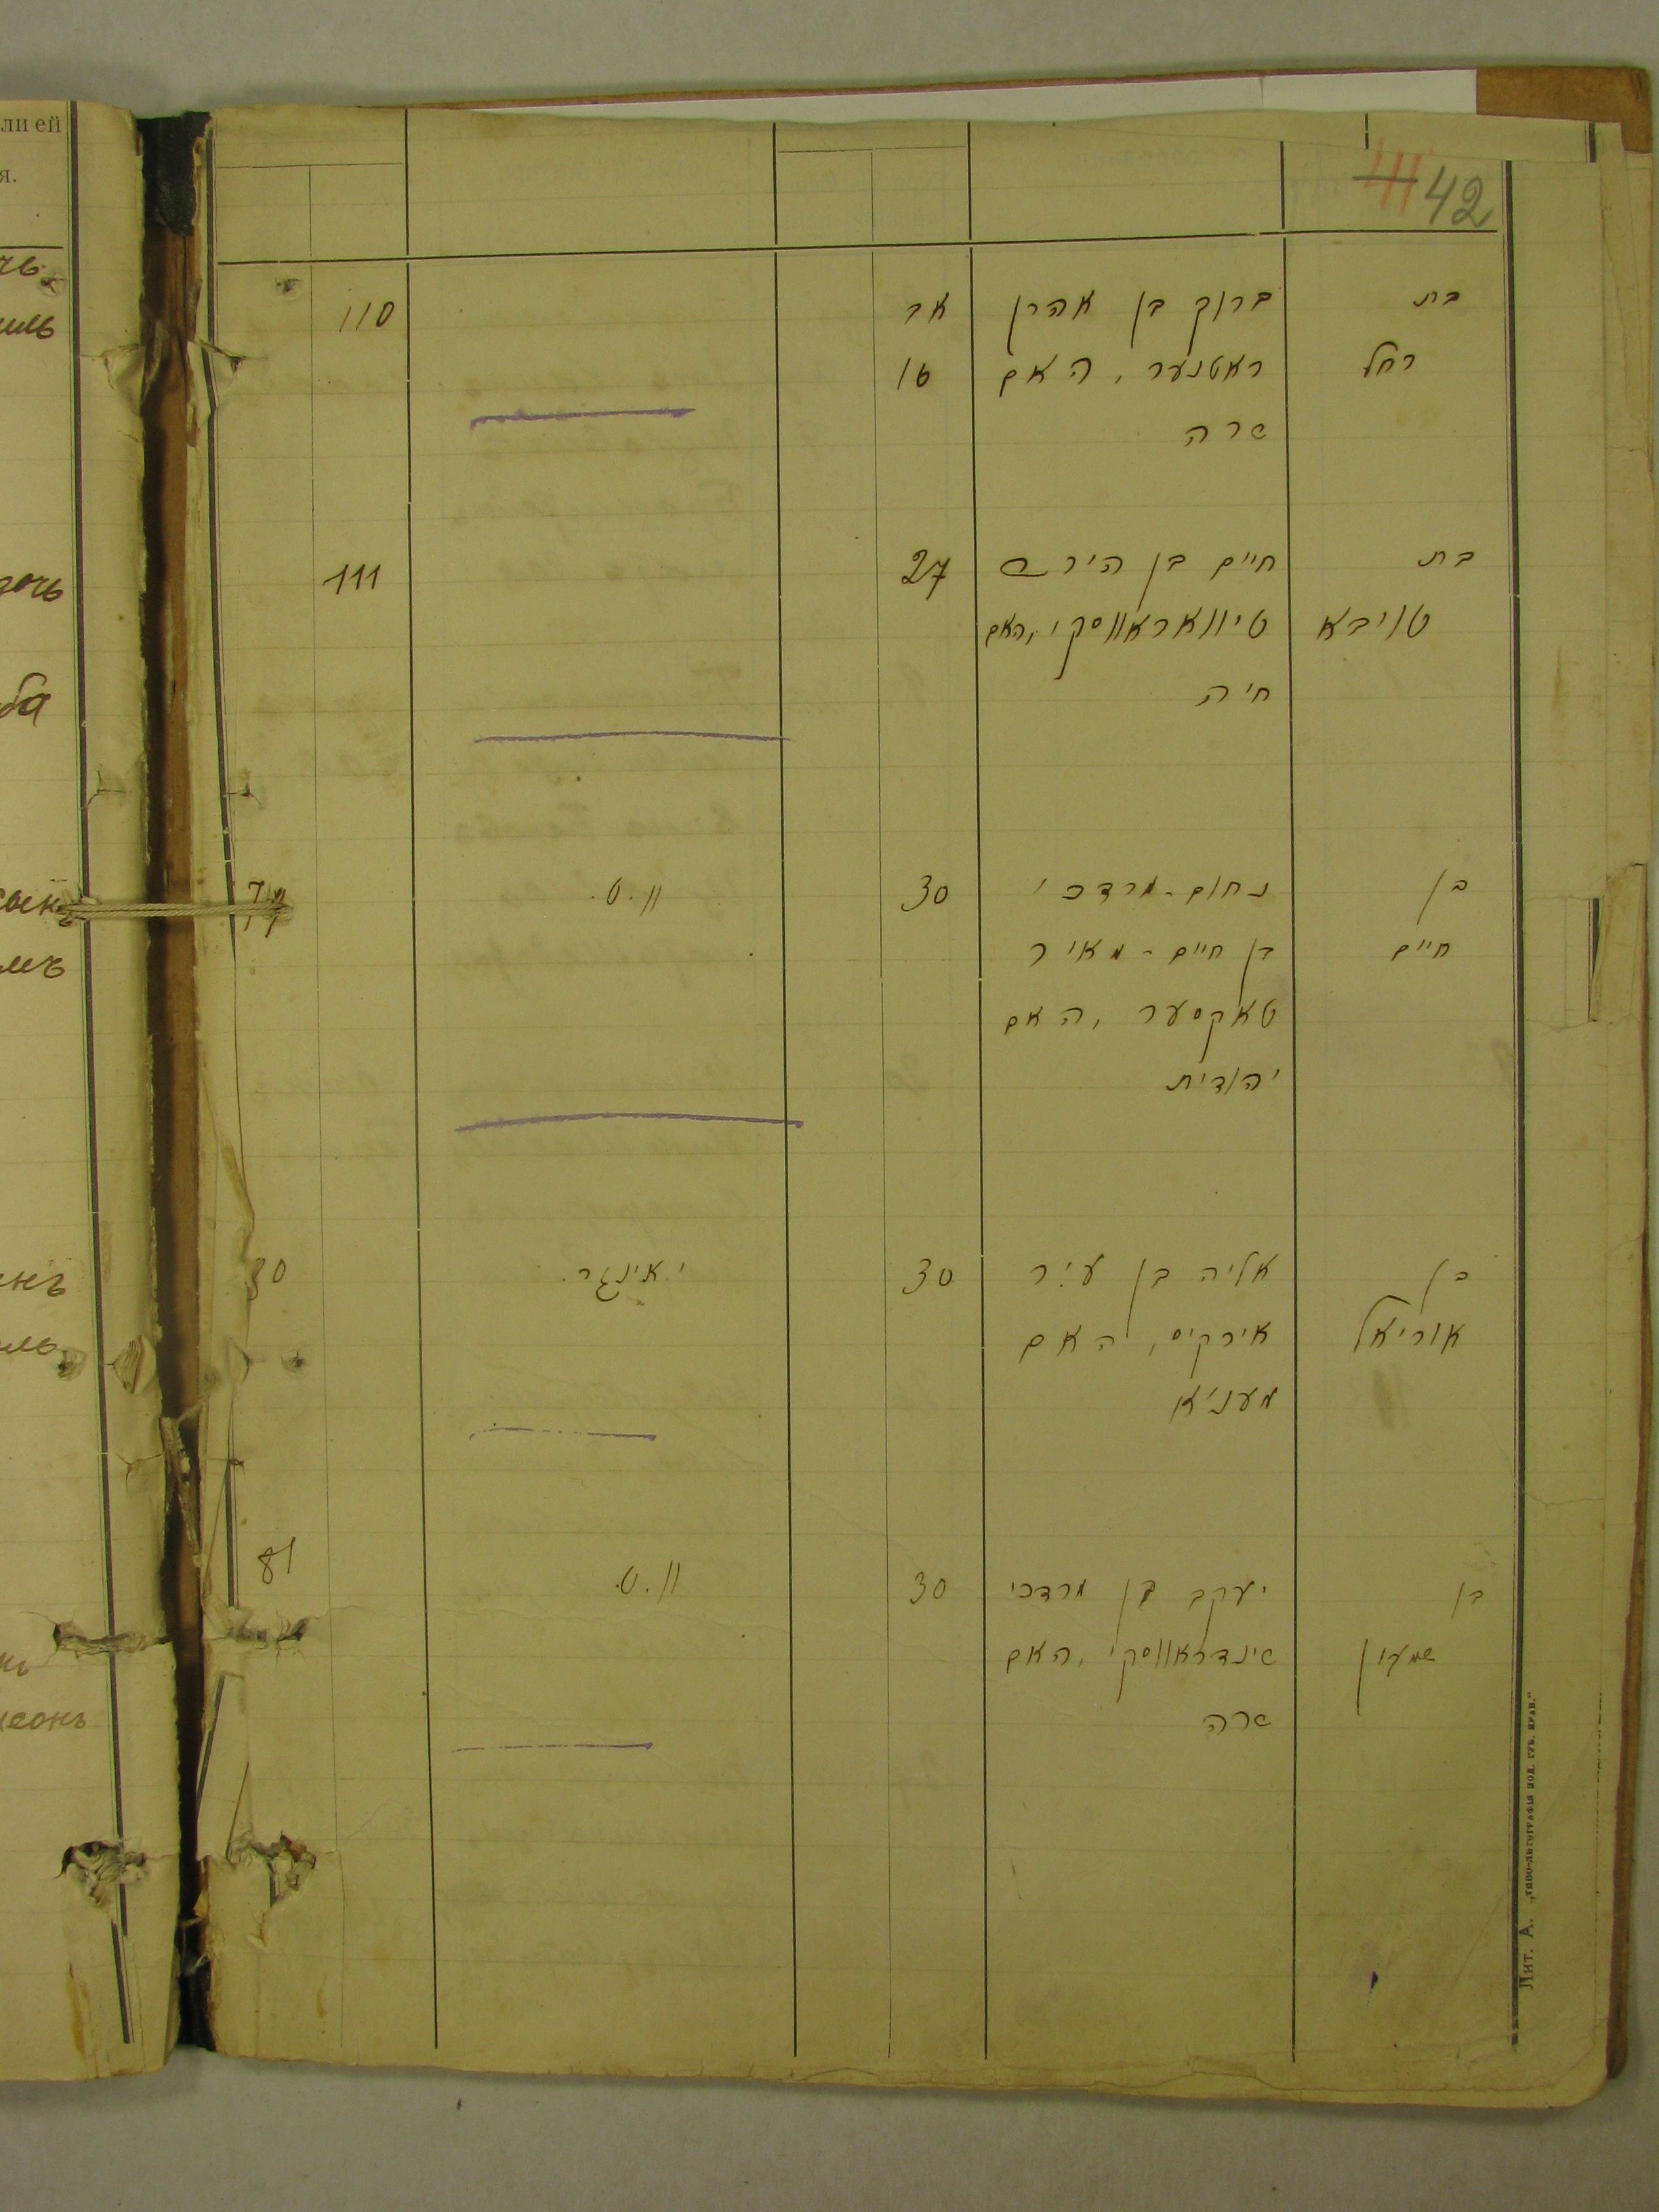 ли ей
я.
41 42
בת
ברוך בן אהרן
אב
110
רחל
ראטנער, האם
16
שרה
בת
חיים בן הירש
27
111
טויבא
טיוואראווסקי, האם
חיה
בן
נחום-מרדכי
30
וו. ט.
חיים
בן חיים-מאיר
טאקסער, האם
יהודית
בן
אליה בן
30
אוריאל
אירקיס, האם
בן
יעקב בן מרדכי
30
וו. ט.
81
שמעון
שינדראווסקי, האם
שרה
Лит. А. „Типо-литографія Под. Губ. Прав."